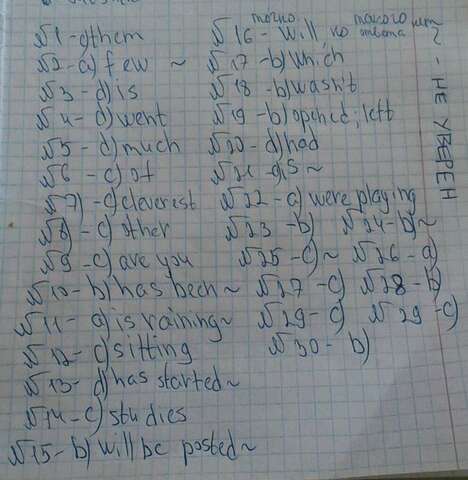 №1 - c) them
№2 - a) few ~
№3 - d) is
№4 - d) went
№5 - d) much
№6 - c) of
№7) - c) cleverest
№8 - c) other
№9 - c) are you
№10 - b) has been ~
№11 - a) is raining ~
№12 - c) sitting
№13 - d) has started ~
№14 - c) studies
№15 - b) will be posted ~
точно такого нет
№16 - will но ответа
№17 - b) which
№18 - b) wasn't
№19 - b) opened; left
№20 - d) had
№21 - c) S ~
№22 - a) were playing
№23 - b) №24 - b) ~
№25 - c) ~ №26 - a)
№27 - c) №28 - b)
№29 - c) №29 - c)
№30 - b)
~ - НЕ УВЕРЕН